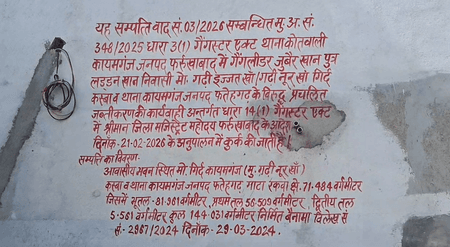 यह सम्पत्ति वाद सं. 03/2026 सम्बन्धित मु.अ.सं.
348/2025 धारा 3(1) गैंगस्टर एक्ट थाना कोतवाली
कायमगंज जनपद फर्रुखाबाद में गैंगलीडर जुबैर खान पुत्र
लड्डन खान निवासी मो. गढ़ी इज्जत खाँ/गढ़ी नूर खाँ गिर्द
कस्बा व थाना कायमगंज जनपद फतेहगढ़ के विरुद्ध प्रचलित
जब्तीकरण की कार्यवाही अन्तर्गत धारा 14(1) गैंगस्टर एक्ट
में श्रीमान जिला मजिस्ट्रेट महोदय फर्रुखाबाद के आदेश
दिनांक-21-02-2026 के अनुपालन में कुर्क की जाती है
सम्पत्ति का विवरण-
आवासीय भवन स्थित मो. गिर्द कायमगंज (मु. गढ़ी नूर खाँ)
कस्बा व थाना कायमगंज जनपद फतेहगढ़ गाटा रकबा से. 71.484 वर्गमीटर
जिसमें भूतल-81.961 वर्गमीटर, प्रथम तल 56.509 वर्गमीटर, द्वितीय तल
5-561 वर्गमीटर कुल 144-031 वर्गमीटर निर्मित बैनामा विलेख सं
सं.-2867/2024 दिनांक-29-03-2024.